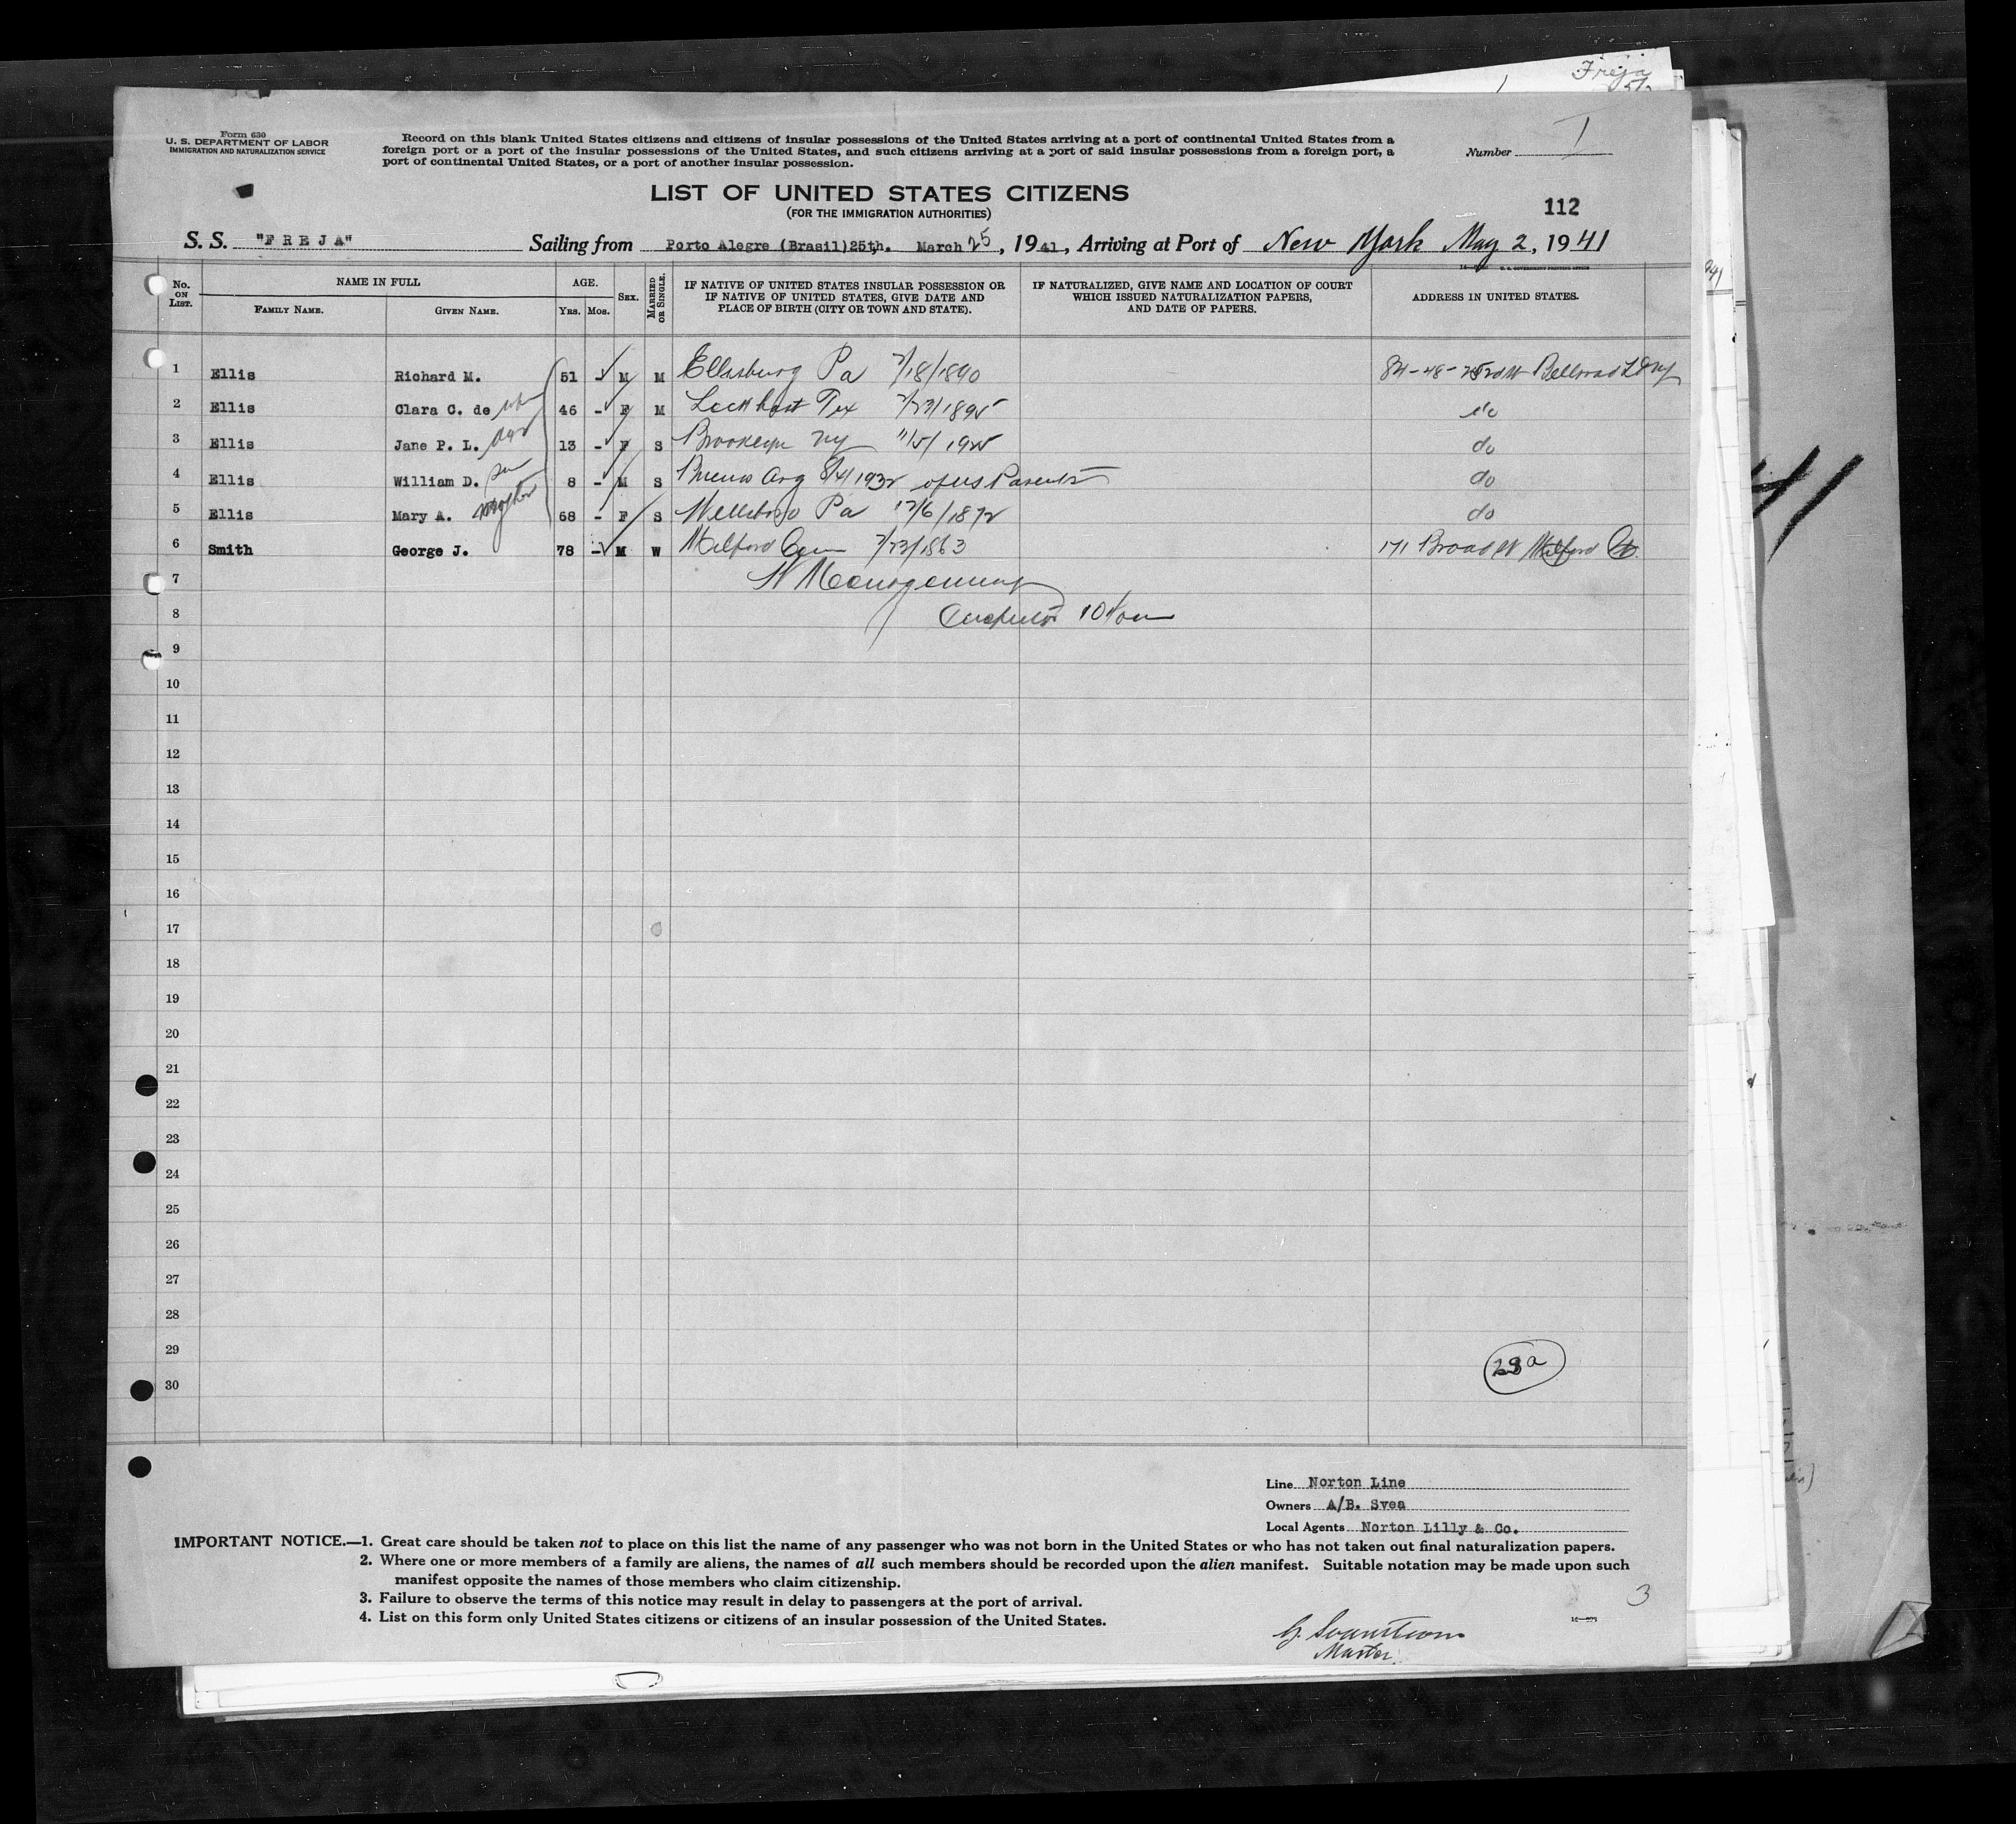 Freja
Form 630
U. S. DEPARTMENT OF LABOR
IMMIGRATION AND NATURALIZATION SERVICE
Record on this blank United States citizens and citizens of insular possessions of the United States arriving at a port of continental United States from a
foreign port or a port of the insular possessions of the United States, and such citizens arriving at a port of said insular possessions from a foreign port, a
port of continental United States, or a port of another insular possession.
Number I
LIST OF UNITED STATES CITIZENS
(FOR THE IMMIGRATION AUTHORITIES)
112
S. S. "FREJA" Sailing from Porto Alegre (Brasil) 25th. March 25, 1941, Arriving at Port of New York May 2, 1941
No. ON LIST. NAME IN FULL FAMILY NAME. GIVEN NAME. AGE. YRS. MOS. SEX. MARRIED OR SINGLE. IF NATIVE OF UNITED STATES INSULAR POSSESSION OR IF NATIVE OF UNITED STATES, GIVE DATE AND PLACE OF BIRTH (CITY OR TOWN AND STATE). IF NATURALIZED, GIVE NAME AND LOCATION OF COURT WHICH ISSUED NATURALIZATION PAPERS, AND DATE OF PAPERS. ADDRESS IN UNITED STATES.
1 Ellis Richard M. 51 - M M Ellisburg Pa /18/1890 84-48-
2 Ellis Clara C. de 46 - F M Lockhart Tex /23/1895 do
3 Ellis Jane P. L. 13 - F S Brooklyn NY 11/5/ do
4 Ellis William D. son 8 - M S Buenos Arg 8/4/1932 of US Parents do
5 Ellis Mary A. 68 - F S Wellsboro Pa 12/6/1872 do
6 Smith George J. 78 - M W Milford Conn /23/1863 171 Broad St Milford Ct.
7
8
9
10
11
12
13
14
15
16
17
18
19
20
21
22
23
24
25
26
27
28
29
30
Line Norton Line
Owners A/B. Svea
Local Agents Norton Lilly & Co.
IMPORTANT NOTICE.—1. Great care should be taken not to place on this list the name of any passenger who was not born in the United States or who has not taken out final naturalization papers.
2. Where one or more members of a family are aliens, the names of all such members should be recorded upon the alien manifest. Suitable notation may be made upon such
manifest opposite the names of those members who claim citizenship.
3. Failure to observe the terms of this notice may result in delay to passengers at the port of arrival.
4. List on this form only United States citizens or citizens of an insular possession of the United States.
3
Master.
41